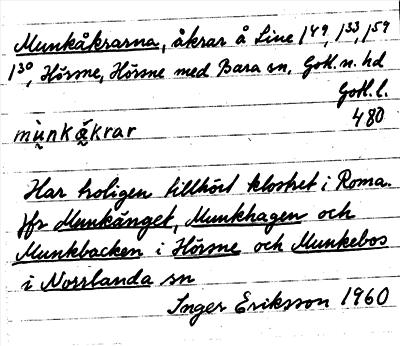 Munkåkrarna, åkrar å Line 1⁴⁹, 1³³, 1⁵⁹
1³⁰, Hörsne, Hörsne med Bara sn, Gotl. n. hd
Gotl. l.
480
mùnkåkrar
Har troligen tillhört klostret i Roma.
Jfr Munkänget, Munkhagen och
Munkbacken i Hörsne och Munkebos
i Norrlanda sn
Inger Eriksson 1960